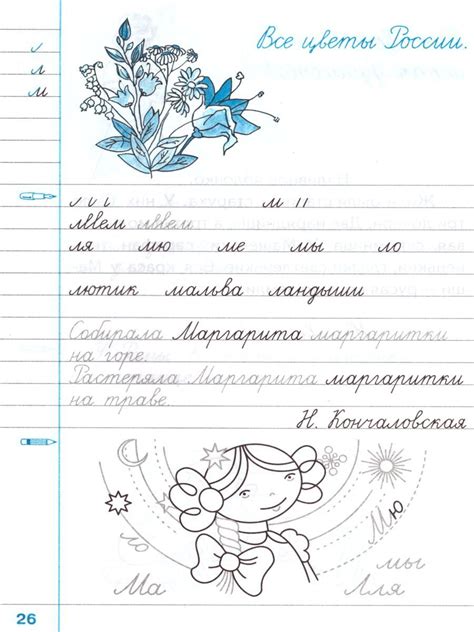 Все цветы России.
л
м
м
лвем лвем
ля мю ме мы ло
лютик мальва ландыши
Собирала Маргарита маргаритки
на горе.
Растеряла Маргарита маргаритки
на траве.
Н. Кончаловская
Мю
ло
мы
Ма Лля
26